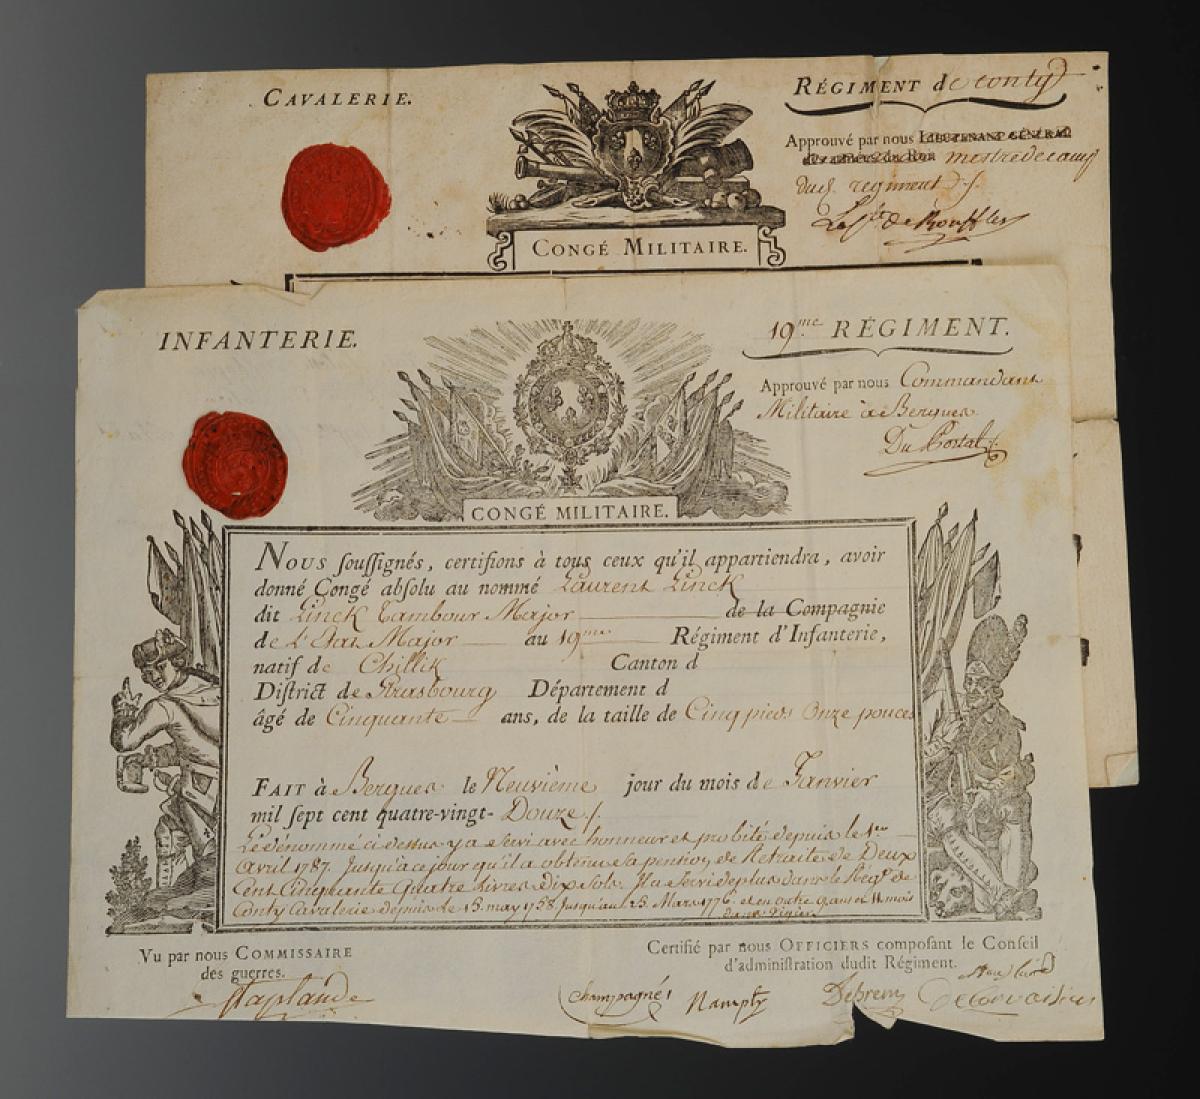 CAVALERIE.
RÉGIMENT de conty
Approuvé par nous LIEUTENANT GÉNÉRAL
des armées du Roi mestre de camp
dud. regiment
de Boufflers
CONGÉ MILITAIRE.
INFANTERIE.
19me RÉGIMENT.
Approuvé par nous Commandant
Militaire à Bergues
Du Portal
CONGÉ MILITAIRE.
Nous soussignés, certifions à tous ceux qu'il appartiendra, avoir
donné Congé absolu au nommé Laurent Linck
dit Linck Tambour Major de la Compagnie
de L'Etat Major au 19me Régiment d'Infanterie,
natif de Chillik Canton d
District de Strasbourg Département d
âgé de Cinquante ans, de la taille de Cinq pieds Onze pouces
FAIT à Bergues le Neuvième jour du mois de Janvier
mil sept cent quatre-vingt- Douze
Le dénommé ci dessus y a servi avec honneur et probité depuis le 1er
Avril 1787. Jusqu'à ce jour qu'il a obtenu sa pension de Retraite de Deux
Cent Cinquante Quatre Livres dix sols. Il a servi de plus dans le Regt. de
Conty Cavalerie depuis le 15. may 1758 Jusqu'au 25. Mars 1776. et en outre 9 ans et 11 mois
Vu par nous COMMISSAIRE
des guerres.
Certifié par nous OFFICIERS composant le Conseil
d'administration dudit Régiment.
Champagné
Nampty